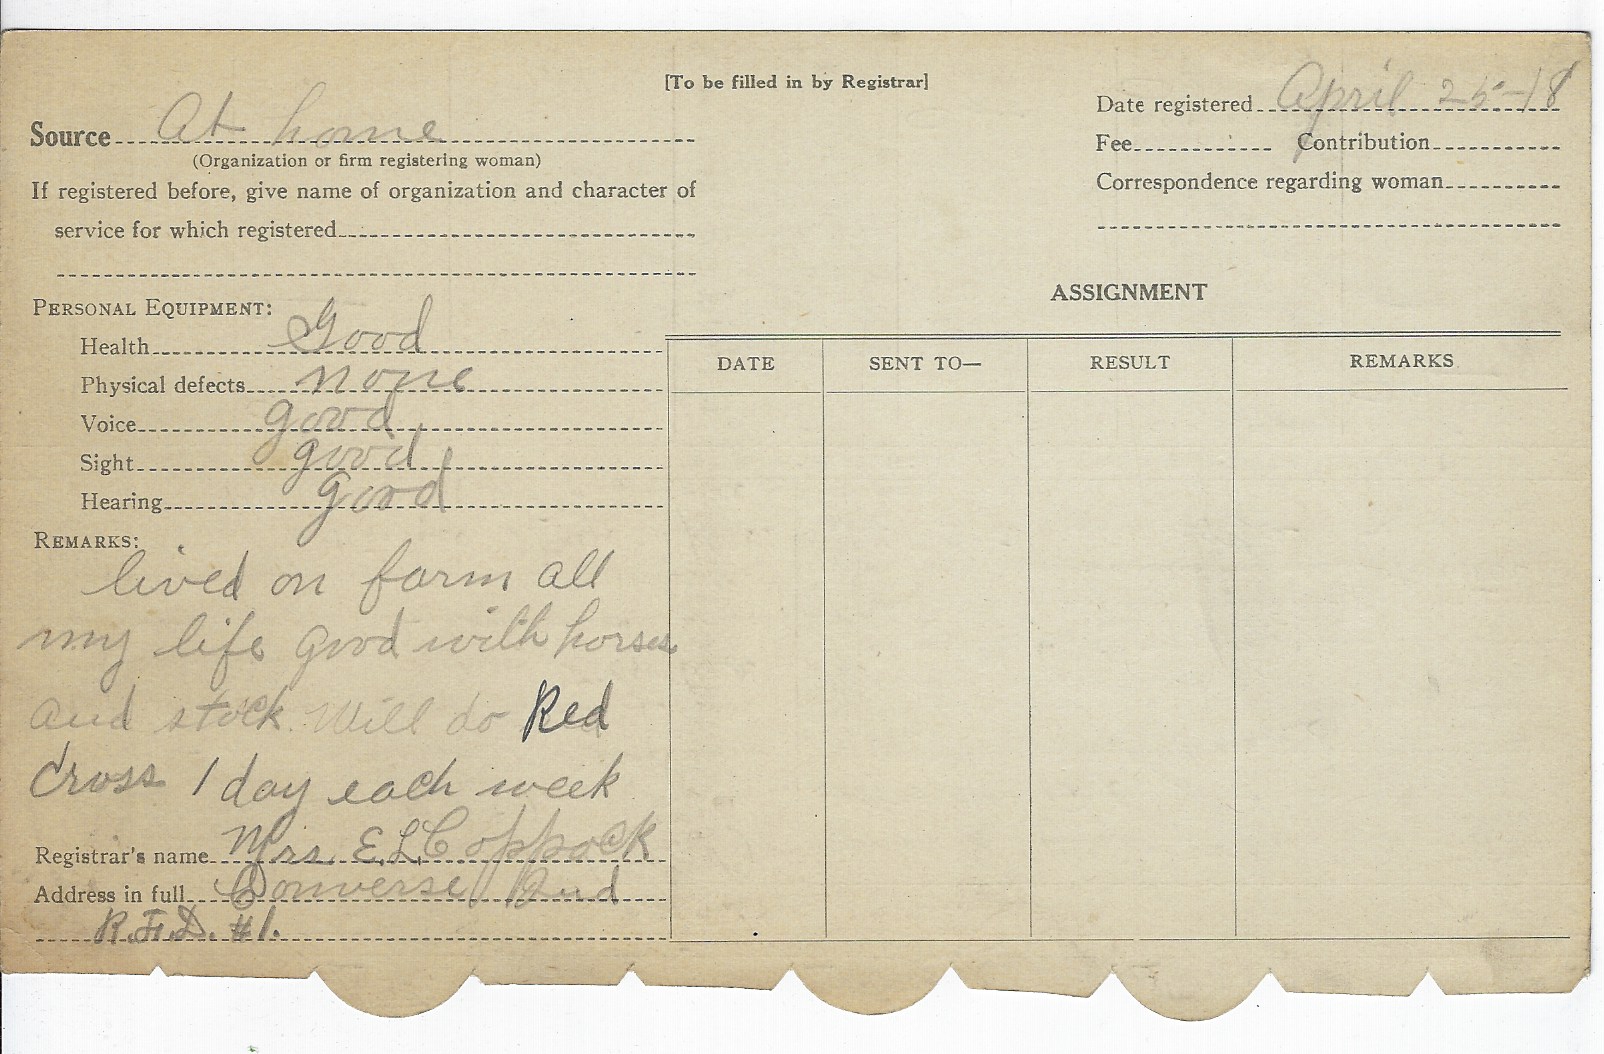 [To be filled in by Registrar]
Source At home
(Organization or firm registering woman)
If registered before, give name of organization and character of
service for which registered
Date registered April 25-18
Fee Contribution
Correspondence regarding woman
PERSONAL EQUIPMENT:
Health Good
Physical defects none
Voice good
Sight good
Hearing good
REMARKS:
lived on farm all
my life good with horses
and stock. Will do Red
Cross 1 day each week
Registrar's name Mrs. E L Coppock
Address in full Converse Ind
R.F.D. #1.
ASSIGNMENT
DATE SENT TO— RESULT REMARKS